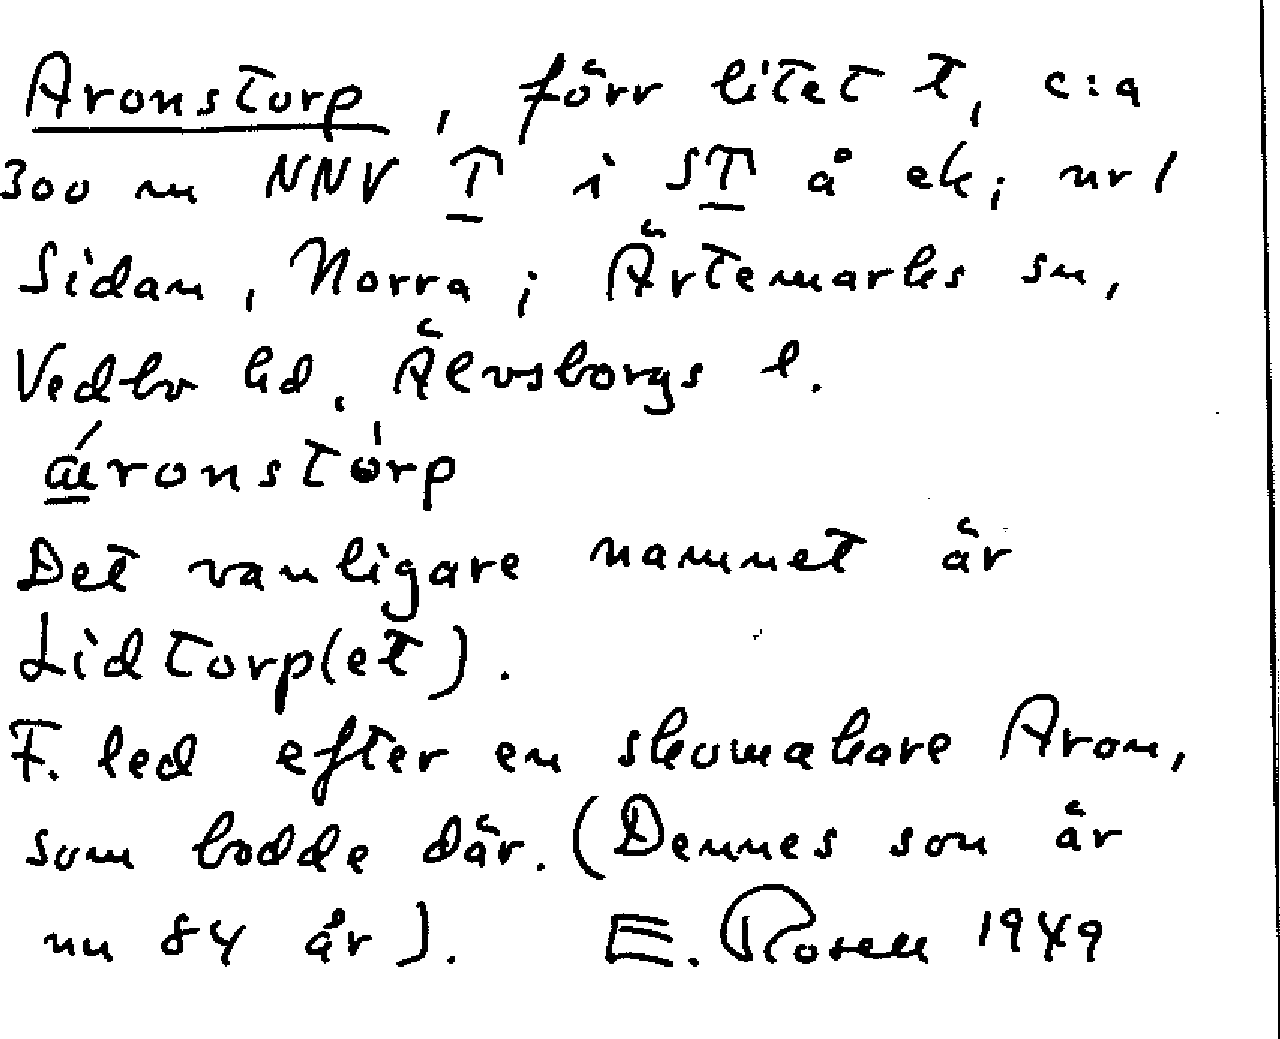 Aronstorp, förr litet t, c:a
300 m NNV T i ST å ek; nr 1
Sidan, Norra; Ärtemarks sn,
Vedbo hd, Älvsborgs l.
ǽronstòrp
Det vanligare namnet är
Lidtorp(et).
F. led efter en skomakare Aron,
som bodde där. (Dennes son är
nu 84 år). E. Rosell 1949